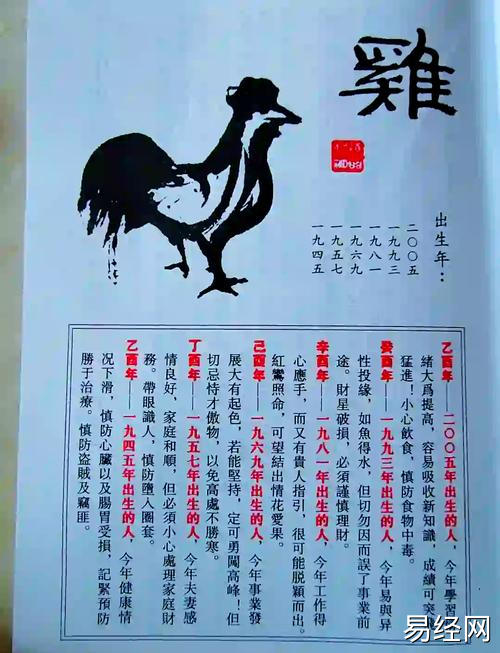 雞
出生年：
二〇〇五
一九九三
一九八一
一九六九
一九五七
一九四五
乙酉年——二〇〇五年出生的人，今年學習
緒大爲提高，容易吸收新知識，成績可突
猛進！小心飲食，慎防食物中毒。
癸酉年——一九九三年出生的人，今年易與異
性投緣，如魚得水，但切勿因而誤了事業前
途。財星破損，必須謹慎理財。
辛酉年——一九八一年出生的人，今年工作得
心應手，而又有貴人指引，很可能脫穎而出。
紅鸞照命，可望結出情花愛果。
己酉年——一九六九年出生的人，今年事業發
展大有起色，若能堅持，定可勇闖高峰！但
切忌恃才傲物，以免高處不勝寒。
丁酉年——一九五七年出生的人，今年夫妻感
情良好，家庭和順，但必須小心處理家庭財
務。帶眼識人，慎防墮入圈套。
乙酉年——一九四五年出生的人，今年健康情
况下滑，慎防心臟以及腸胃受損，記緊預防
勝于治療。慎防盜賊及竊匪。
易经网